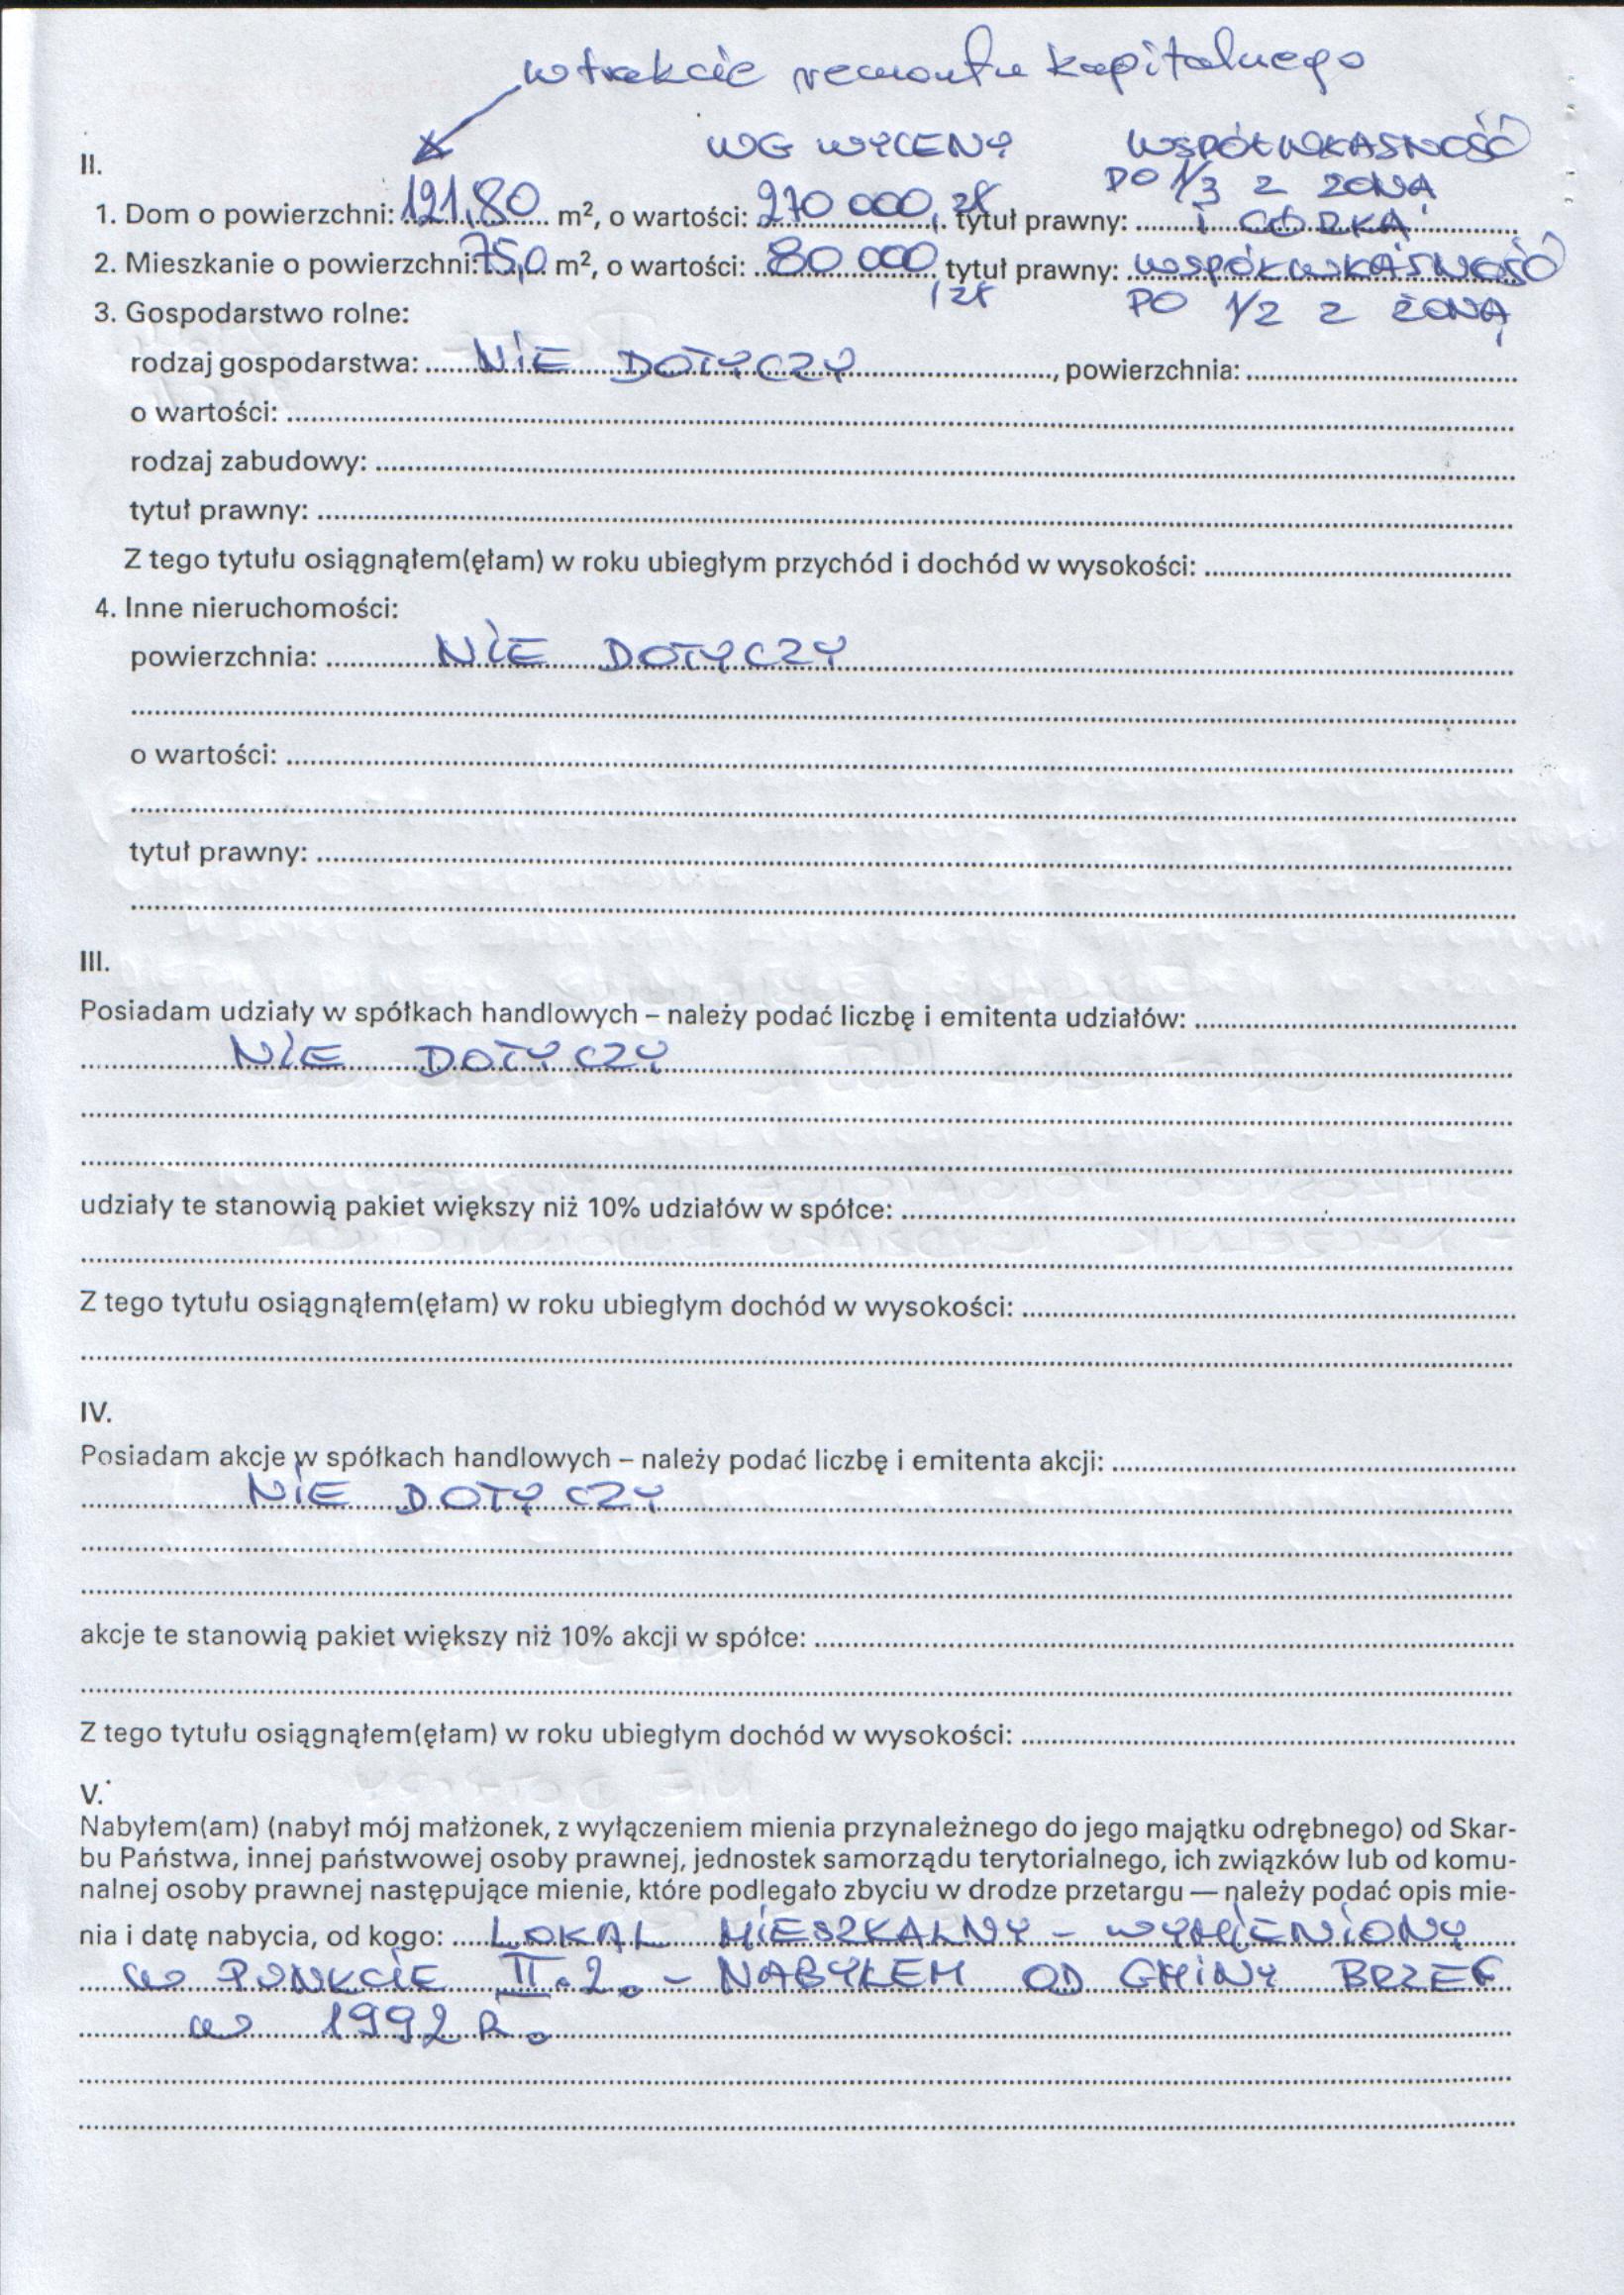 w trakcie remontu kapitalnego
WG WYCENY WSPÓŁWŁASNOŚĆ
II. PO 1/3 Z ŻONĄ
1. Dom o powierzchni: 121,80 m², o wartości: 270 000,- zł tytuł prawny: I CÓRKĄ
2. Mieszkanie o powierzchni: 75,0 m², o wartości: 80 000,- zł tytuł prawny: WSPÓŁWŁASNOŚĆ
PO 1/2 Z ŻONĄ
3. Gospodarstwo rolne:
rodzaj gospodarstwa: NIE DOTYCZY, powierzchnia:
o wartości:
rodzaj zabudowy:
tytuł prawny:
Z tego tytułu osiągnąłem(ęłam) w roku ubiegłym przychód i dochód w wysokości:
4. Inne nieruchomości:
powierzchnia: NIE DOTYCZY
o wartości:
tytuł prawny:
III.
Posiadam udziały w spółkach handlowych – należy podać liczbę i emitenta udziałów:
NIE DOTYCZY
udziały te stanowią pakiet większy niż 10% udziałów w spółce:
Z tego tytułu osiągnąłem(ęłam) w roku ubiegłym dochód w wysokości:
IV.
Posiadam akcje w spółkach handlowych – należy podać liczbę i emitenta akcji:
NIE DOTYCZY
akcje te stanowią pakiet większy niż 10% akcji w spółce:
Z tego tytułu osiągnąłem(ęłam) w roku ubiegłym dochód w wysokości:
V.
Nabyłem(am) (nabył mój małżonek, z wyłączeniem mienia przynależnego do jego majątku odrębnego) od Skar-
bu Państwa, innej państwowej osoby prawnej, jednostek samorządu terytorialnego, ich związków lub od komu-
nalnej osoby prawnej następujące mienie, które podlegało zbyciu w drodze przetargu — należy podać opis mie-
nia i datę nabycia, od kogo: LOKAL MIESZKALNY – WYMIENIONY
W PUNKCIE II.2. – NABYŁEM OD GMINY BRZEG
W 1992 R.